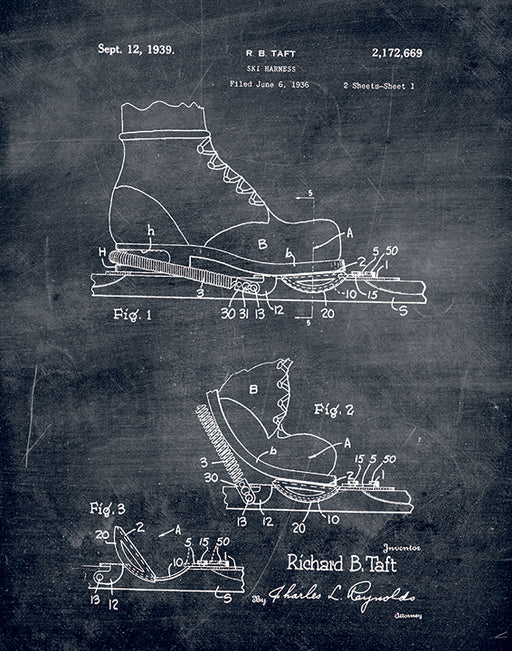 Sept. 12, 1939.
R. B. TAFT
2,172,669
SKI HARNESS
Filed June 6, 1936
2 Sheets-Sheet 1
5
A
B
b
h
H
2
5
50
1
3
10
15
S
30
31
13
12
20
5
Fig. 1
B
Fig. 2
A
b
3
2
15
5
50
1
30
13
12
20
10
S
Fig. 3
20
2
A
5
15
50
1
10
13
12
S
Inventor
Richard B. Taft
By Charles L. Reynolds
Attorney